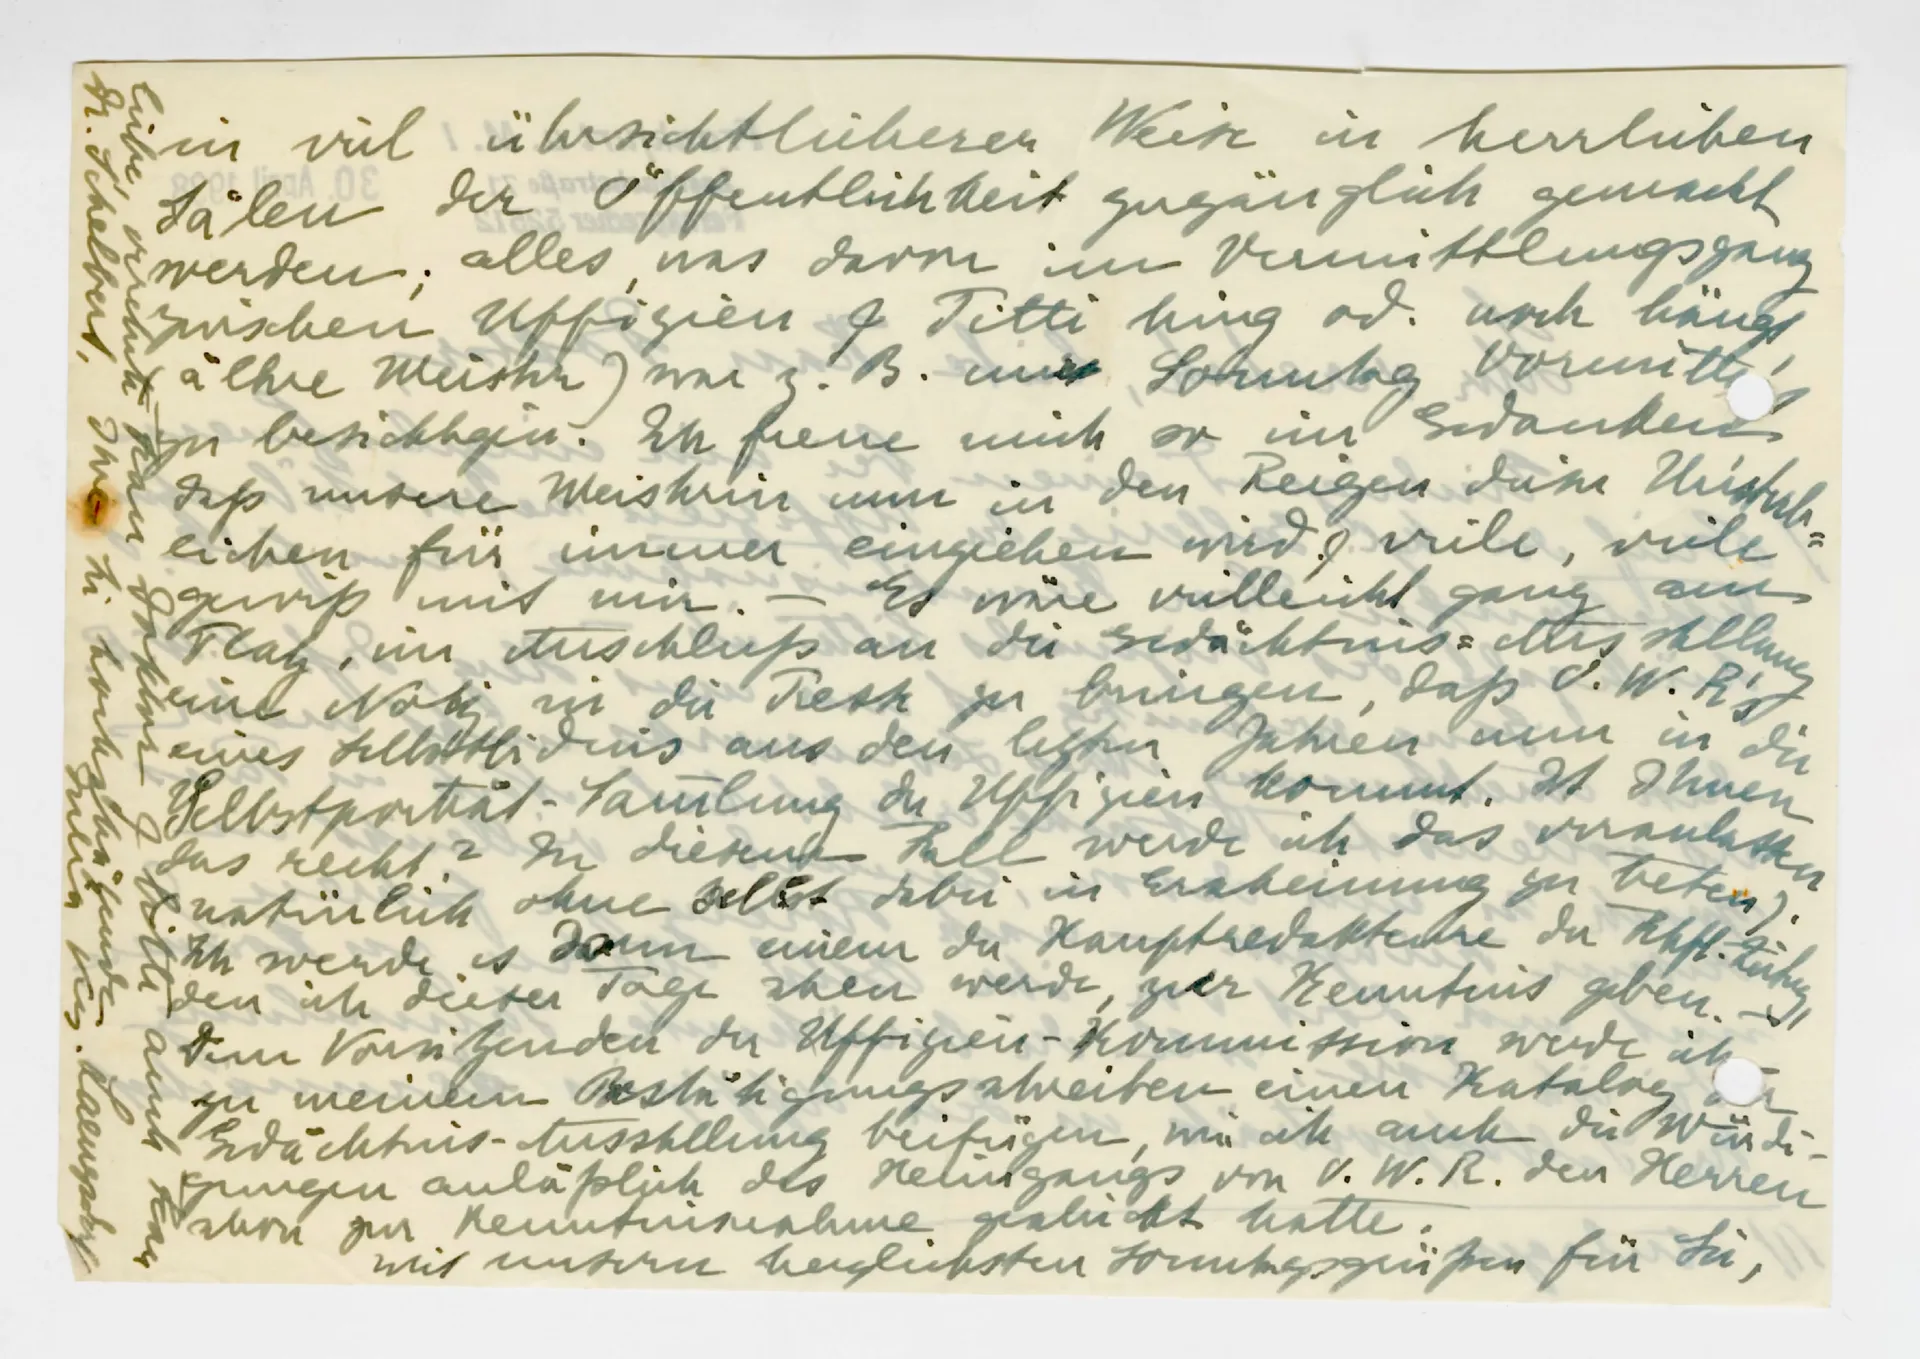 in viel übersichtlicherer Weise in herrlichen
Sälen der Öffentlichkeit zugänglich gemacht
werden; alles, was davon im Vermittlungsgang
zwischen Uffizien & Pitti hing od. noch hängt,
ältere Meister) war z. B. nur Sonntag Vormittg
zu besichtigen. Ich freue mich so im Gedanken
daß unsere Meisterin nun in den Reigen dieser Unsterb=
lichen für immer einziehen wird & viele, viele
gewiß mit mir. — Es wäre vielleicht ganz am
Platz, im Anschluß an die Gedächtnis=Ausstellung
eine Notiz in die Presse zu bringen, daß O. W. R's
eines Selbstbildnis aus den letzten Jahren nun in die
Selbstporträt-Samlung der Uffizien kommt. Ist Ihnen
das recht? In diesem Fall werde ich das veranlassen
natürlich ohne selbst dabei in Erscheinung zu treten).
Ich werde es dann einem der Hauptredakteure der Zeitung,
den ich dieser Tage sehen werde, zur Kenntnis geben. —
Dem Vorsitzenden der Uffizien-Kommission werde ich
zu meinem Bestätigungsschreiben einen Katalog der
Gedächtnis-Ausstellung beifügen, wie ich auch die Würdi-
gungen anläßlich des Heimgangs von O. W. R. den Herren
schon zur Kenntnisnahme geschickt hatte.
Mit unsern herzlichsten Sonntagsgrüßen für Sie,
Liebe, verehrte Frau Doktor & bitte auch Frau
Dr. Schelbert, Ihre Sie hochschätzende
Julia Laengsdorff